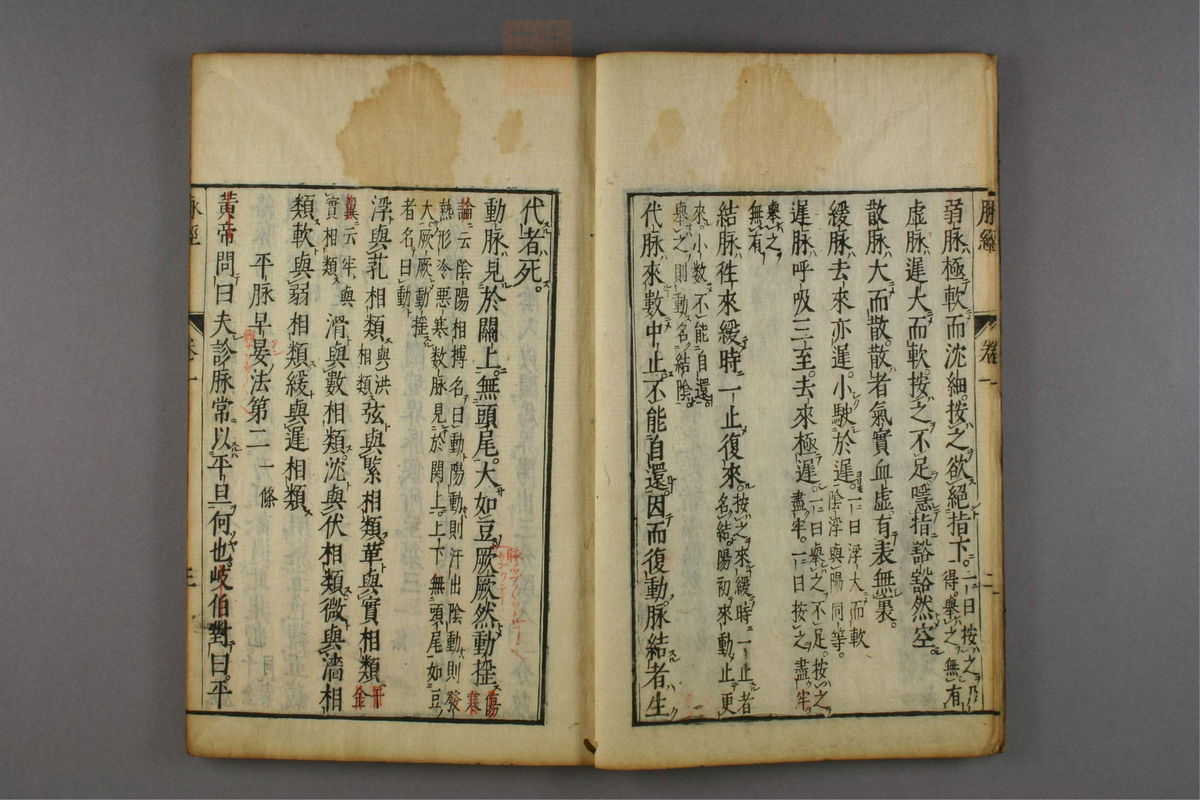 脉經　卷一　二
弱脉極軟而沈細按之欲絕指下一曰按之乃得舉之無有
虛脉遲大而軟按之不足隱指豁豁然空
散脉大而散散者氣實血虛有表無裏
緩脉去來亦遲小駛於遲一曰浮大而軟陰浮與陽同等
遲脉呼吸三至去來極遲一曰舉之不足按之盡牢一曰按之盡牢舉之
無有
結脉徃來緩時一止復來按之來緩時一止者名結陽初來動止更
來小數不能自還舉之則動名結陰
代脉來數中止不能自還因而復動脉結者生
代者死
動脉見於關上無頭尾大如豆厥厥然動搖傷寒
論云陰陽相搏名曰動陽動則汗出陰動則發
熱形冷惡寒數脉見於関上上下無頭尾如豆
大厥厥動搖
者名曰動
浮與芤相類與洪相類弦與緊相類革與實相類千金
翼云牢與
實相類
滑與數相類沈與伏相類微與濇相
類軟與弱相類緩與遲相類
平脉早晏法第二　一條
黃帝問曰夫診脉常以平旦何也岐伯對曰平
脉經　卷一　三